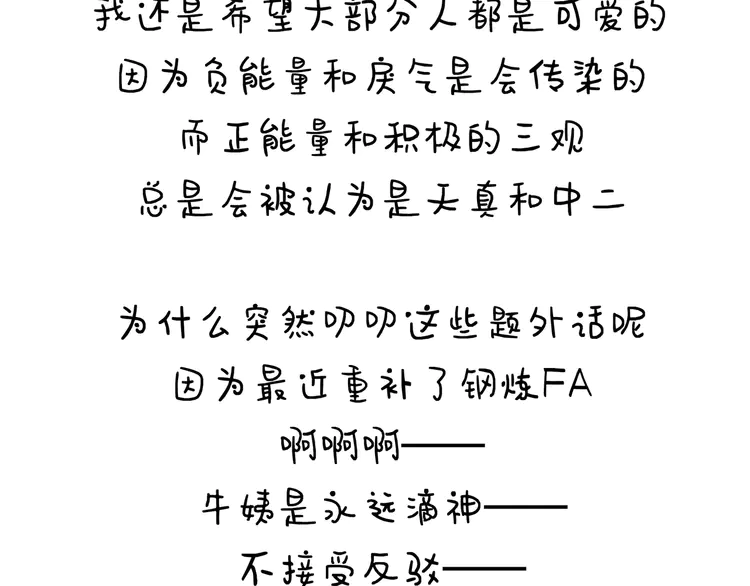 我还是希望大部分人都是可爱的
因为负能量和戾气是会传染的
而正能量和积极的三观
总是会被认为是天真和中二
为什么突然叨叨这些题外话呢
因为最近重补了钢炼FA
啊啊啊——
牛姨是永远滴神——
不接受反驳——